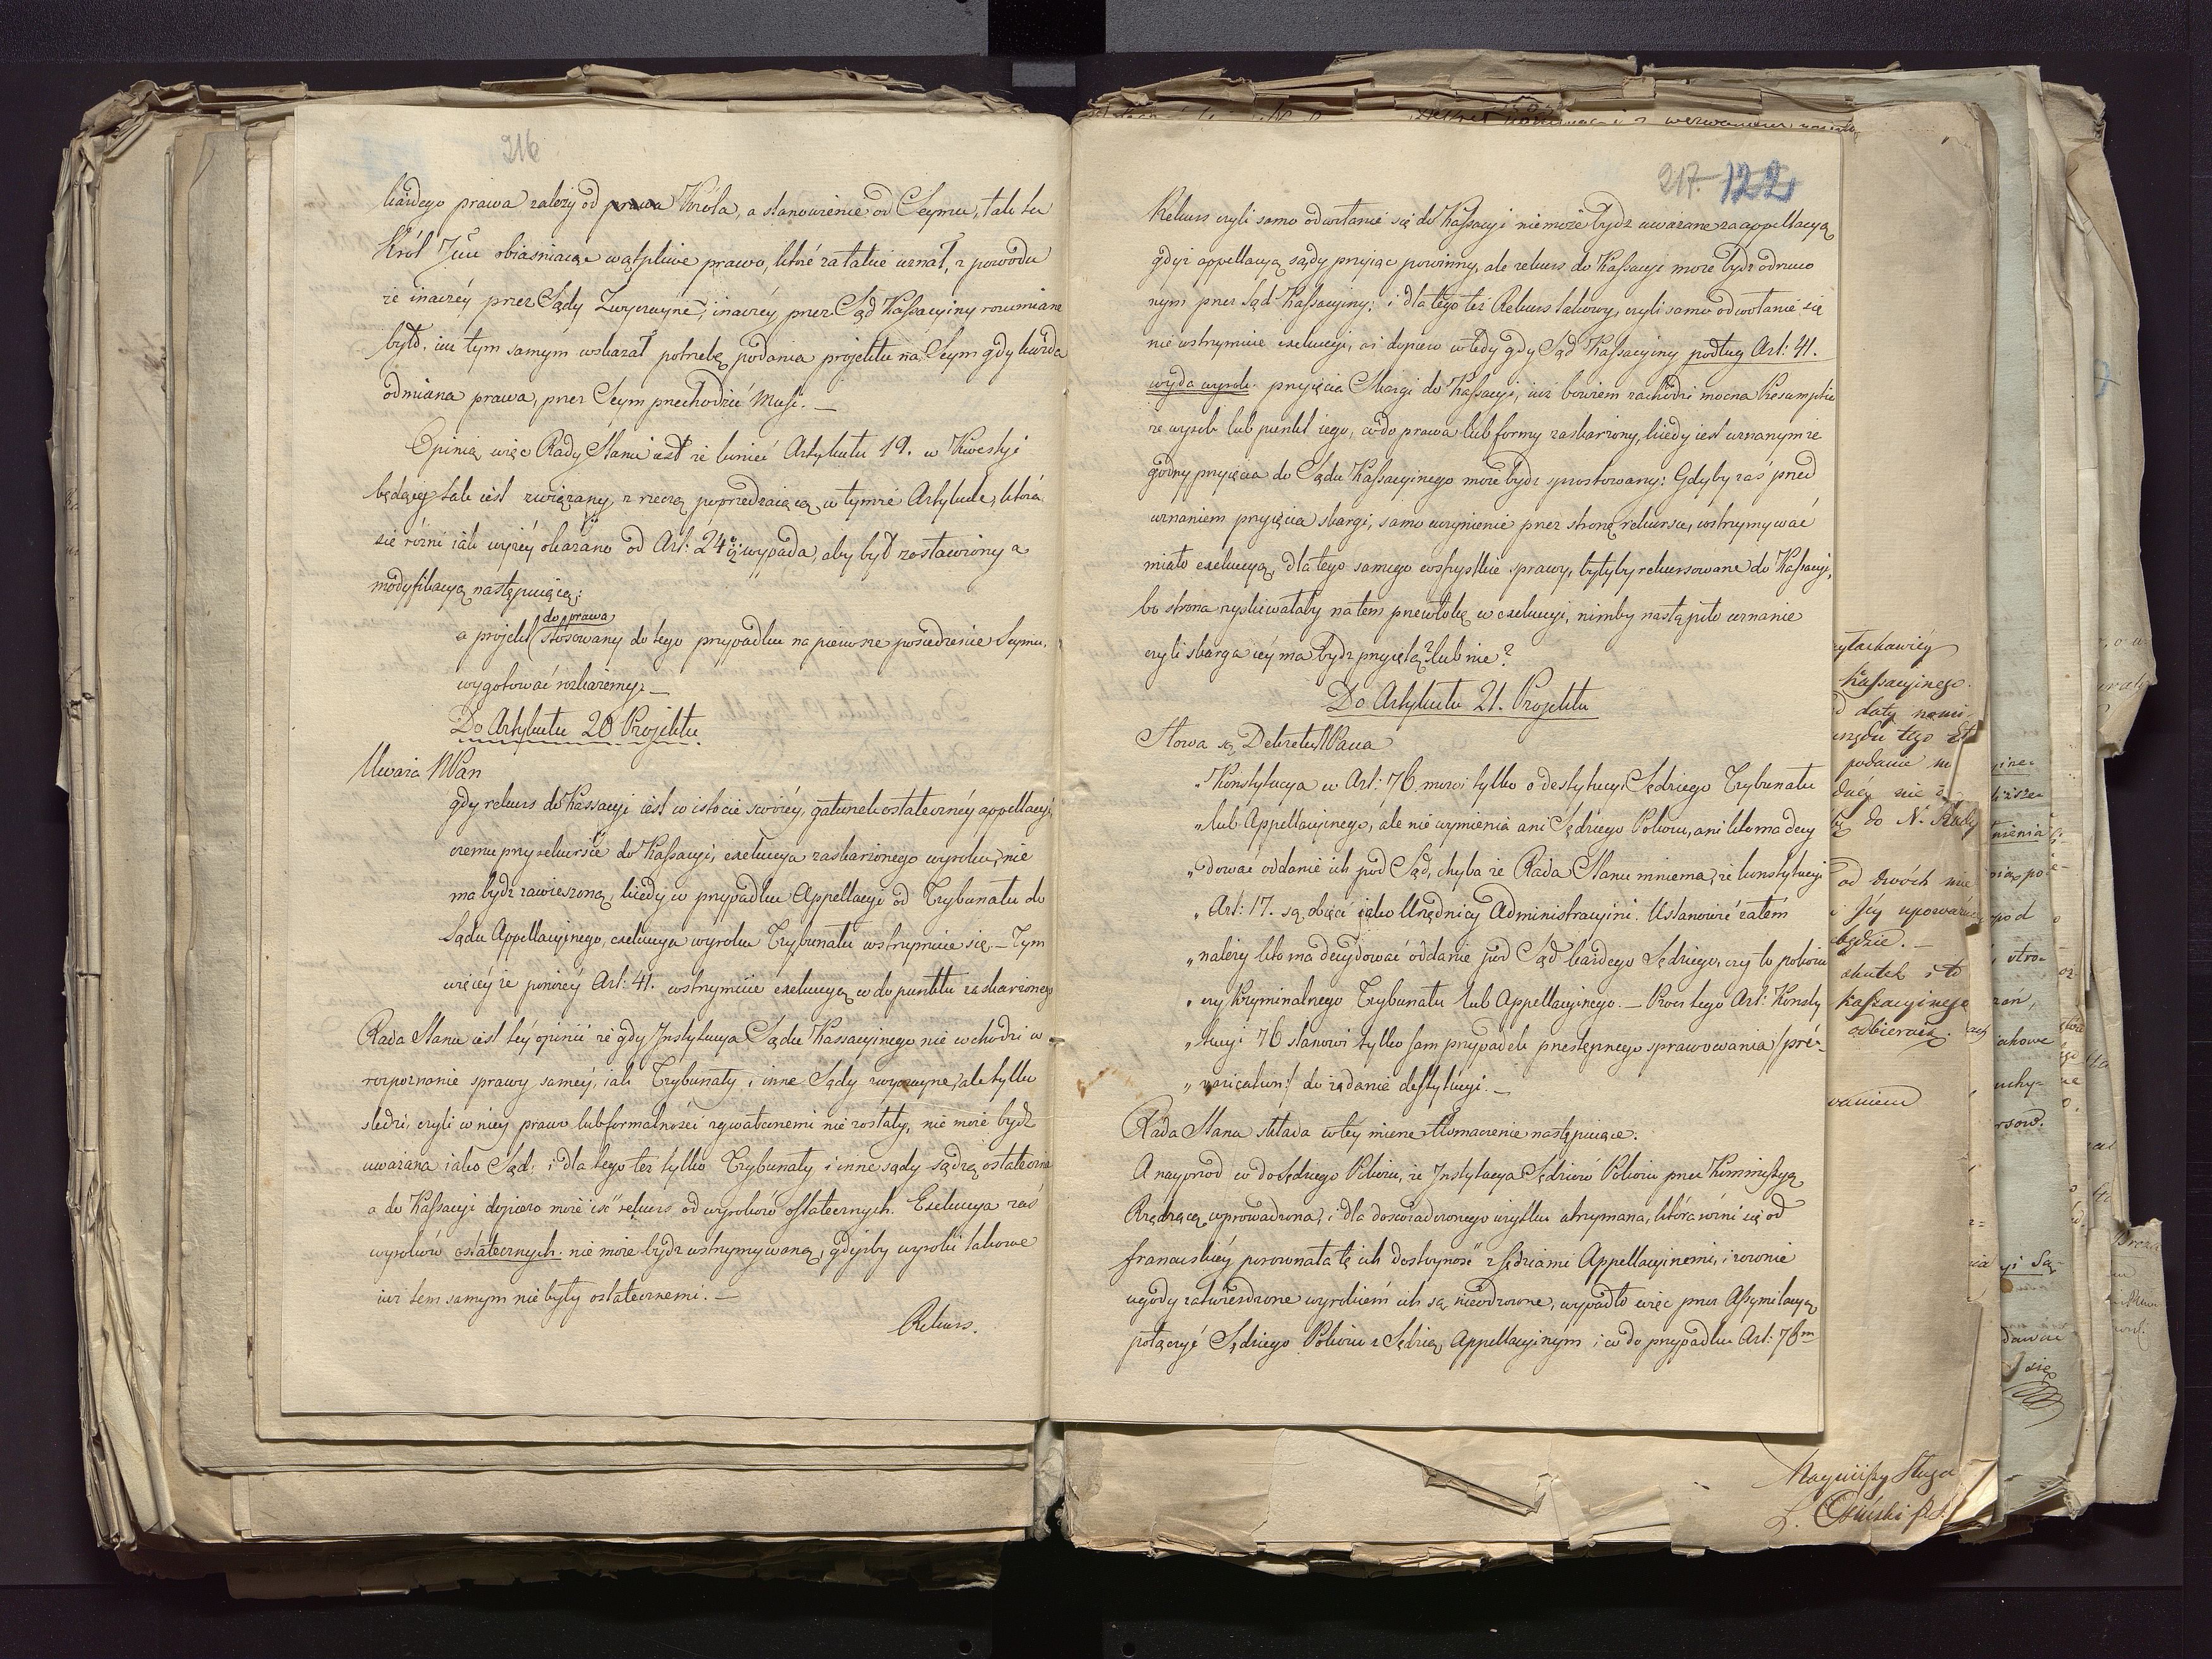 216
każdego prawa zależy od prawa Króla, a stanowienie od Seymu, tak tu
Król Jmć obiaśniaiąc wątpliwe prawo, które za takie uznał, z powodu
że inaczéy przez Sądy Zwyczayne, inaczéy przez Sąd Kassacyiny rozumiane
było. iuż tym samym wskazał potrzebę podania projektu na Seym gdy każda
odmiana prawa, przez Seym przechodzić Musi. —
Opinią więc Rady Stanu iest że koniec Artykułu 19. w Kwestyi
będącéy tak iest związany, z rzeczą poprzedzaiącą w tymże Artykule, która
się różni iak wyżéy okazano od Art: 24 wypada, aby był zostawiony z
modyfikacyą następuiącą:
do prawa
a projekt stosowany do tego przypadku na pierwsze posiedzenie Seymu,
wygotować rozkażemy. —
Do Artykułu 20 Projektu.
Uważa NPan
gdy rekurs do Kassacyi iest w istocie swoiéy, gatunek ostatecznéy appellacyi,
czemu przy rekursie do Kassacyi, exekucya zaskarżonego wyroku, nie
ma bydź zawieszoną, kiedy w przypadku Appellacyi od Trybunału do
Sądu Appellacyinego, exekucya wyroku Trybunału wstrzymuie się. — Tym
więcéy że poniżéy Art: 41. wstrzymuie exekucyą co do punktu zaskarżonego
Rada Stanu iest téy opinii że gdy Instytucya Sądu Kassacyinego nie wchodzi w
rozpoznanie sprawy saméy, iak Trybunały i inne Sądy zwyczayne, ale tylko
śledzi, czyli w niéy prawo lub formalności zgwałconemi nie zostały, nie może bydź
uważana iako Sąd: i dla tego też tylko Trybunały i inne sądy sądzą ostatecznie
a do Kassacyi dopiero może iść rekurs od wyroków ostatecznych. Exekucya zaś
wyroków ostatecznych. nie może bydź wstrzymywaną, gdyżby wyroki takowe
iuż tem samym nie były ostatecznemi. —
Rekurs.
217. 122
Rekurs czyli samo odwołanie się do Kassacyi nie może bydź uważane za appellacyą
gdyż appellacyą sądy przyiąć powinny, ale rekurs do Kassacyi może bydź odrzuco
nym przez Sąd Kassacyiny: i dla tego też Rekurs takowy, czyli samo odwołanie się
nie wstrzymuie exekucyi, aż dopiero wtedy gdy Sąd Kassacyiny podług Art: 41.
wyda wyrok. przyięcia Skargi do Kassacyi, iuż bowiem zachodzi mocna Resumpcia
że wyrok lub punkt iego, co do prawa lub formy zaskarżony, kiedy iest uznanym że
godny przyięcia do Sądu Kassacyinego może bydź sprostowany: Gdyby zaś przed
uznaniem przyięcia skargi, samo uczynienie przez stronę rekursu, wstrzymywać
miało exekucyą, dla tego samego wszystkie sprawy, byłyby rekursowane do Kassacyi,
bo strona zyskiwałaby na tem przewłokę w exekucyi, nimby nastąpiło uznanie
czyli skarga iéy ma bydź przyiętą? lub nie?
Do Artykułu 21. Projektu
Słowa są Dekretu NPana
„Konstytucya w Art: 76. mówi tylko o destytucyi Sędziego Trybunału
„lub Appellacyinego, ale nie wymienia ani Sędziego Pokoiu, ani kto ma decy
„dować oddanie ich pod Sąd, chyba że Rada Stanu mniema, że konstytucyi
„Art: 17. są obięci iako Urzędnicy Administracyini. Ustanowić zatém
„należy kto ma decydować oddanie pod Sąd każdego Sędziego, czy to pokoiu
„czy Kryminalnego Trybunału lub Appellacyinego. — Procz tego Art: Konsty
„tucyi 76 stanowi tylko sam przypadek przestępnego sprawowania /pré-
„varication/ do żądania destytucyi. —
Rada Stanu składa w téy mierze tłomaczenie następuiące:
A nayprzod co do Sędziego Pokoiu, że Instytucya Sędziów Pokoiu przez Kommissyą
Rządzącą wprowadzona, i dla doświadczonego użytku utrzymana, która różni się od
francuskiéy porownała tę ich dostoyność z Sędziami Appellacyinemi, i rownie
ugody zatwierdzone wyrokiem ich są nieodzowne, wypadło więc przez Assymilacyą
połączyć Sędziego Pokoiu z Sędzią Appellacyinym i co do przypadku Art: 76m
Kassacyinego.
podanie
do N. Rady
od dwóch
będzie. —
skutek i to
Kassacyinego
odbieraią.
Nayniższy Sługa